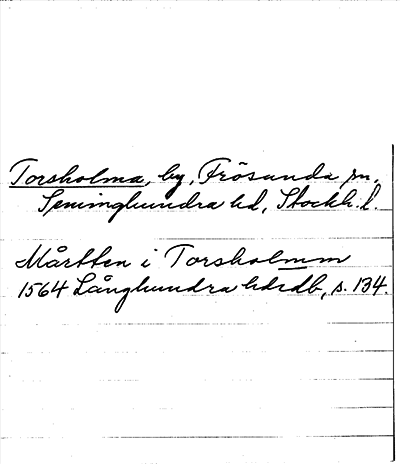 Torsholma, by, Frösunda sn,
Seminghundra hd, Stockh. l.
Mårtten i Torsholmm
1564 Långhundra hdsdb, s. 134.